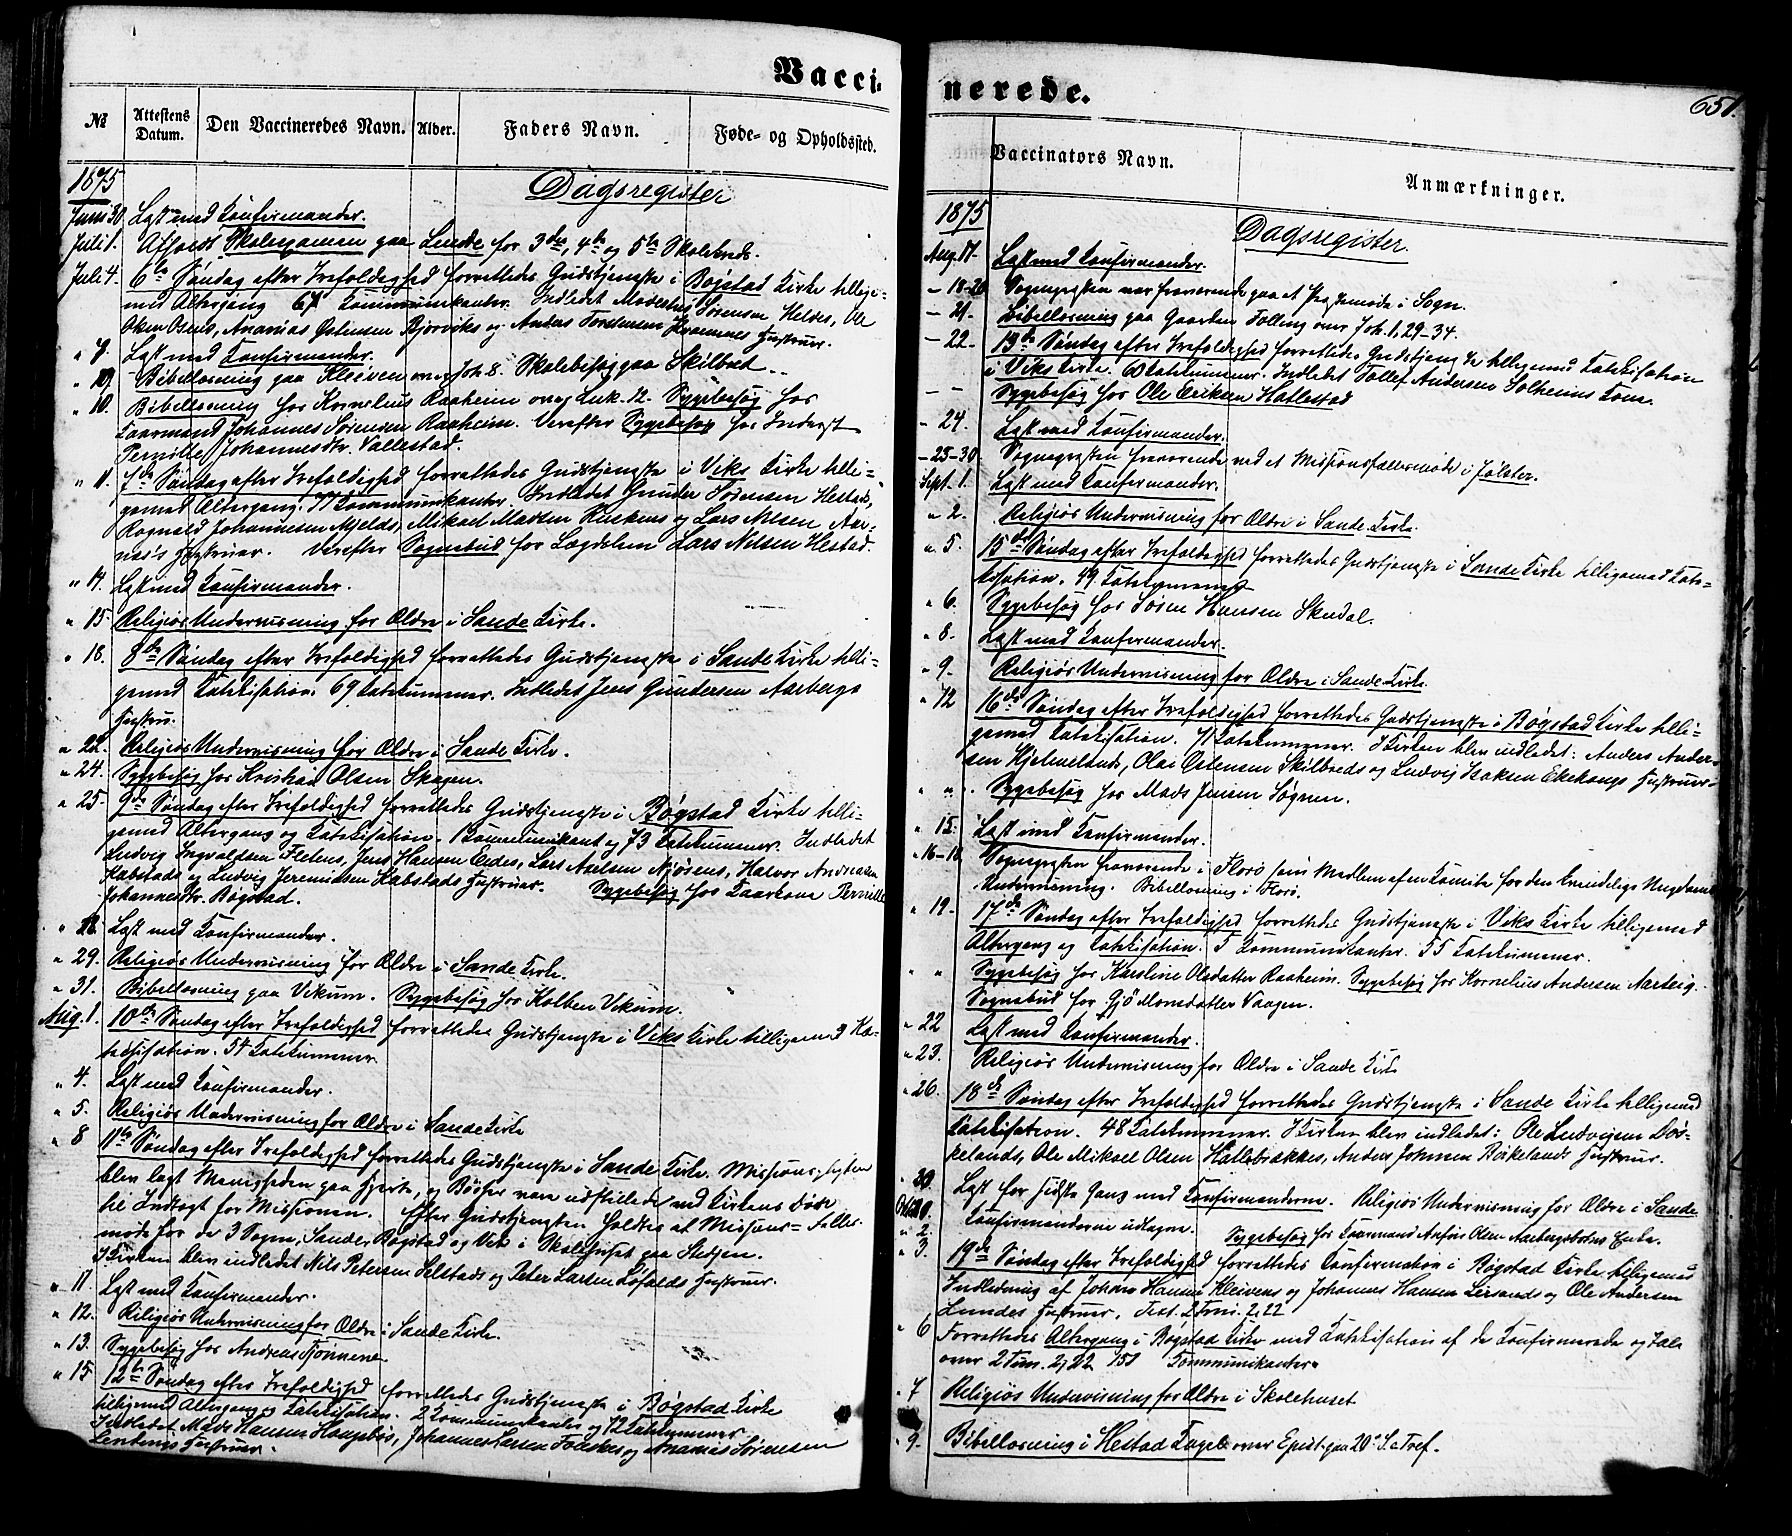 Vacci-
№
Attestens Datum.
Den Vaccineredes Navn.
Alder.
Faders Navn.
Føde- og Opholdssted.
1875
Dagsregister
Juni 30. Læst med Konfirmander.
Juli 1. Afholdt Skoleexamen paa Lunde for 3die, 4de og 5te Skolekreds.
Juli 4. 6te Søndag efter Trefoldighed forrettedes Gudstjeneste i Bøgstad Kirke tillige-
med Altergang 67 Kommunikanter. Indledet Sørensen Heldes, Ole
Olsens, Ananias Østensen Bjørviks og Anders Torstensen Hustruer.
" 7. Læst med Konfirmander.
" Bibellæsning paa Kleiven over Joh. 8. Skolebesøg paa Skilbred.
" 10. Bibellæsning hos Kornelius Raaheim over Luk. 12. Sygebesøg hos
Kaarmand Johannes Sørensen Raaheim. Derefter Sygebesøg hos Inderst
Pernille Johannesdtr. Vallestad.
" 11. 7de Søndag efter Trefoldighed forrettedes Gudstjeneste i Viks Kirke tilli-
gemed Altergang. 77 Kommunikanter. Indledet Gunder Sørensen Hestads,
Rognald Johannesen Mjelds, Mikael Madsen og Lars Nilsen Aar-
nes's Hustruer. Derefter Sognebud for Lægdslem Lars Nilsen Hestad.
" 14. Læst med Konfirmander.
" 15. Religiøs Undervisning for Ældre i Sande Kirke.
" 18. 8de Søndag efter Trefoldighed forrettedes Gudstjeneste i Sande Kirke tilli-
gemed Katekisation. 69 Katekumener. Indledet Jens Gundersen Aarbergs
Hustru.
" 22. Religiøs Undervisning for Ældre i Sande Kirke.
" 24. Sygebesøg hos Kristian Olsen Skagen.
" 25. 9de Søndag efter Trefoldighed forrettedes Gudstjeneste i Bøgstad Kirke tilli-
gemed Altergang og Katekisation. 1 Kommunikant og 73 Katekumener. Indledet
Ludvig Ingvaldsen Fletens, Jens Hansen Eides, Lars Njøsens, Halvor Andreasen
Kabstads og Ludvig Jeremiasen Kabstads Hustruer. Sygebesøg hos Kaarkone Pernille
Johannesdtr. Bøgstad.
" 28. Læst med Konfirmander.
" 29. Religiøs Undervisning for Ældre i Sande Kirke.
" 31. Bibellæsning paa Vikum. Sygebesøg hos Kolben Vikum.
Aug. 1. 10de Søndag efter Trefoldighed forrettedes Gudstjeneste i Viks Kirke tilligemed Ka-
tekisation. 54 Katekumener.
" 4. Læst med Konfirmander.
" 5. Religiøs Undervisning for Ældre i Sande Kirke
" 8 11te Søndag efter Trefoldighed forrettedes Gudstjeneste i Sande Kirke. Missions-
blev lagt Menigheden paa Hjerte, og Bøsser vare udstillede ved Kirkens Døre
til Indtægt for Missionen. Efter Gudstjenesten holdtes et Missions-Fælles-
møde for de 3 Sogn, Sande, Bøgstad og Vik i Skolehuset paa Stedjen.
I Kirken blev indledet Nils Petersen Selstads og Peter Larsen Løfalds Hustruer.
" 11. Læst med Konfirmander.
" 12. Religiøs Undervisning for Ældre i Sande Kirke.
" 13. Sygebesøg hos Andreas Tjønnene
" 15 12te Søndag efter Trefoldighed forrettedes Gudstjeneste i Bøgstad Kirke
tilligemed Altergang og Katekisation. 2 Kommunikanter og 72 Katekumener
Indledet Mads Hansen Haugebøs, Johannes Larsen og Ananias Sørensen
Hustruer.
nerede.
651.
Vaccinators Navn.
Anmærkninger.
1875
Dagsregister.
Aug. 17. Læst med Konfirmander.
— 18-20 Sognepresten var fraværende paa et Prestemøde i Sogn.
— 21. Bibellæsning paa Gaarden Tolling over Joh. 1, 29-34.
— 22. 13de Søndag efter Trefoldighed forrettedes Gudstjeneste tilligemed Katekisation
i Viks Kirke. 60 Katekumener. Indledet Tollef Andersen Solheims Kone.
— Sygebesøg hos Ole Eriksen Hatlestad
— 24. Læst med Konfirmander.
— 25-30 Sognepresten fraværende ved et Missionsfællesmøde i Jølster.
Sept. 1. Læst med Konfirmander.
" 2. Religiøs Undervisning for Ældre i Sande Kirke.
" 5. 15de Søndag efter Trefoldighed forrettedes Gudstjeneste i Sande Kirke tilligemed Kate-
kisation. 49 Katekumener
" 6. Sygebesøg hos Hansen Skudal.
" 8. Læst med Konfirmander.
" 9. Religiøs Undervisning for Ældre i Sande Kirke.
" 12 16de Søndag efter Trefoldighed forrettedes Gudstjeneste i Bøgstad Kirke tilli-
gemed Katekisation. 71 Katekumener. I Kirken blev indledet: Anders Ander-
sen Hjelmelands, Olai Østensen Skilbreds og Ludvig Isaksen Hustruer.
" " Sygebesøg hos Mads Jensen Søgnen.
" 15. Læst med Konfirmander.
" 16-18 Sognepresten fraværende i Florø som Medlem af en Komite for den kvindelige Ungdoms
Undervisning. Bibellæsning i Florø.
" 19. 17de Søndag efter Trefoldighed forrettedes Gudstjeneste i Viks Kirke tilligemed
Altergang og Katekisation. 5 Kommunikanter. 55 Katekumener.
" " Sygebesøg hos Karoline Olsdatter Raaheim. Sygebesøg hos Kornelius Andersen
Sognebud for Gjø Monsdatter Vaagen.
" 22 Læst med Konfirmander.
" 23. Religiøs Undervisning for Ældre i Sande Kirke
" 26. 18de Søndag efter Trefoldighed forrettedes Gudstjeneste i Sande Kirke tilligemed
Katekisation. 48 Katekumener. I Kirken blev indledet: Ole Ludvigsen
kelands, Ole Mikael Olsen Hallebrækkes, Anders Johnsen Hustruer.
" 30. Læst for sidste Gang med Konfirmanderne. Religiøs Undervisning for Ældre i Sande
Konfirmanderne udtagne.
" 2. Sygebesøg hos Kaarmand Olsen Enke.
" 3. 19de Søndag efter Trefoldighed forrettedes Konfirmation i Bøgstad Kirke tilligemed
Indledning af Johan Hansen Kleivens og Johannes Hansen og Ole Andersen
Lundes Hustruer. Text. 2 Tim. 2, 22
" 6 Forrettedes Altergang i Bøgstad Kirke med Katekisation af de Konfirmerede og Tale
over 2 Tim. 2, 22 151 Kommunikanter
" 7 Religiøs Undervisning for Ældre i Skolehuset
" 9. Bibellæsning i Hestad Kapel over Epist. paa 20de S. e. Tref.